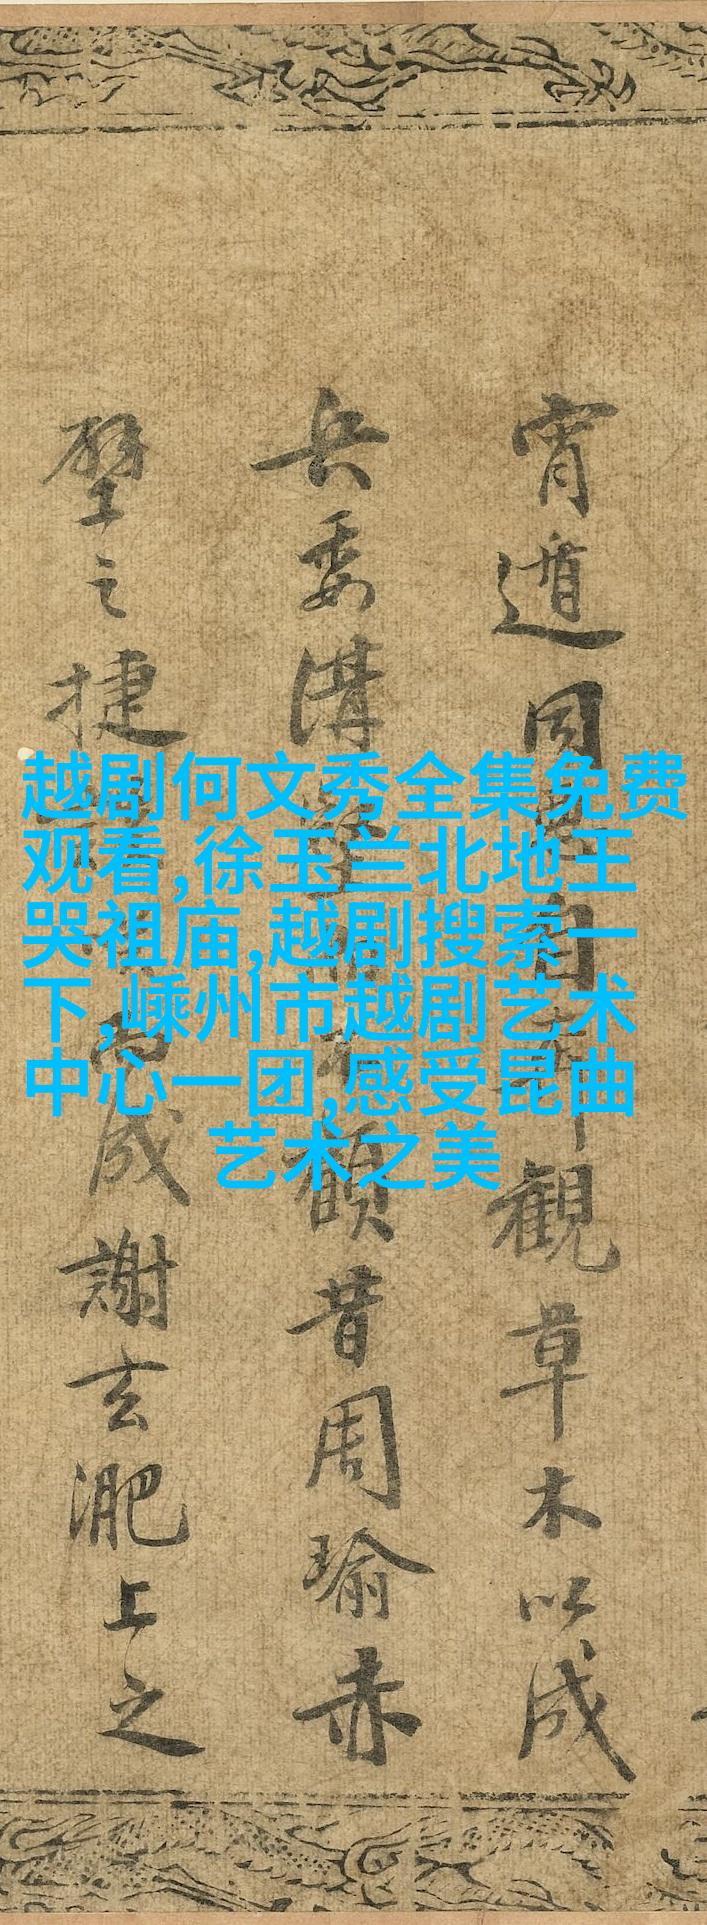 越剧何文秀全集免费
观看,徐玉兰北地王
哭祖庙,越剧搜索一
下,嵊州市越剧艺术
中心一团,感受昆曲
艺术之美
宵遁自觀草木以成
兵委溝壑不顧昔周瑜赤
壁之捷而成謝玄淝上之